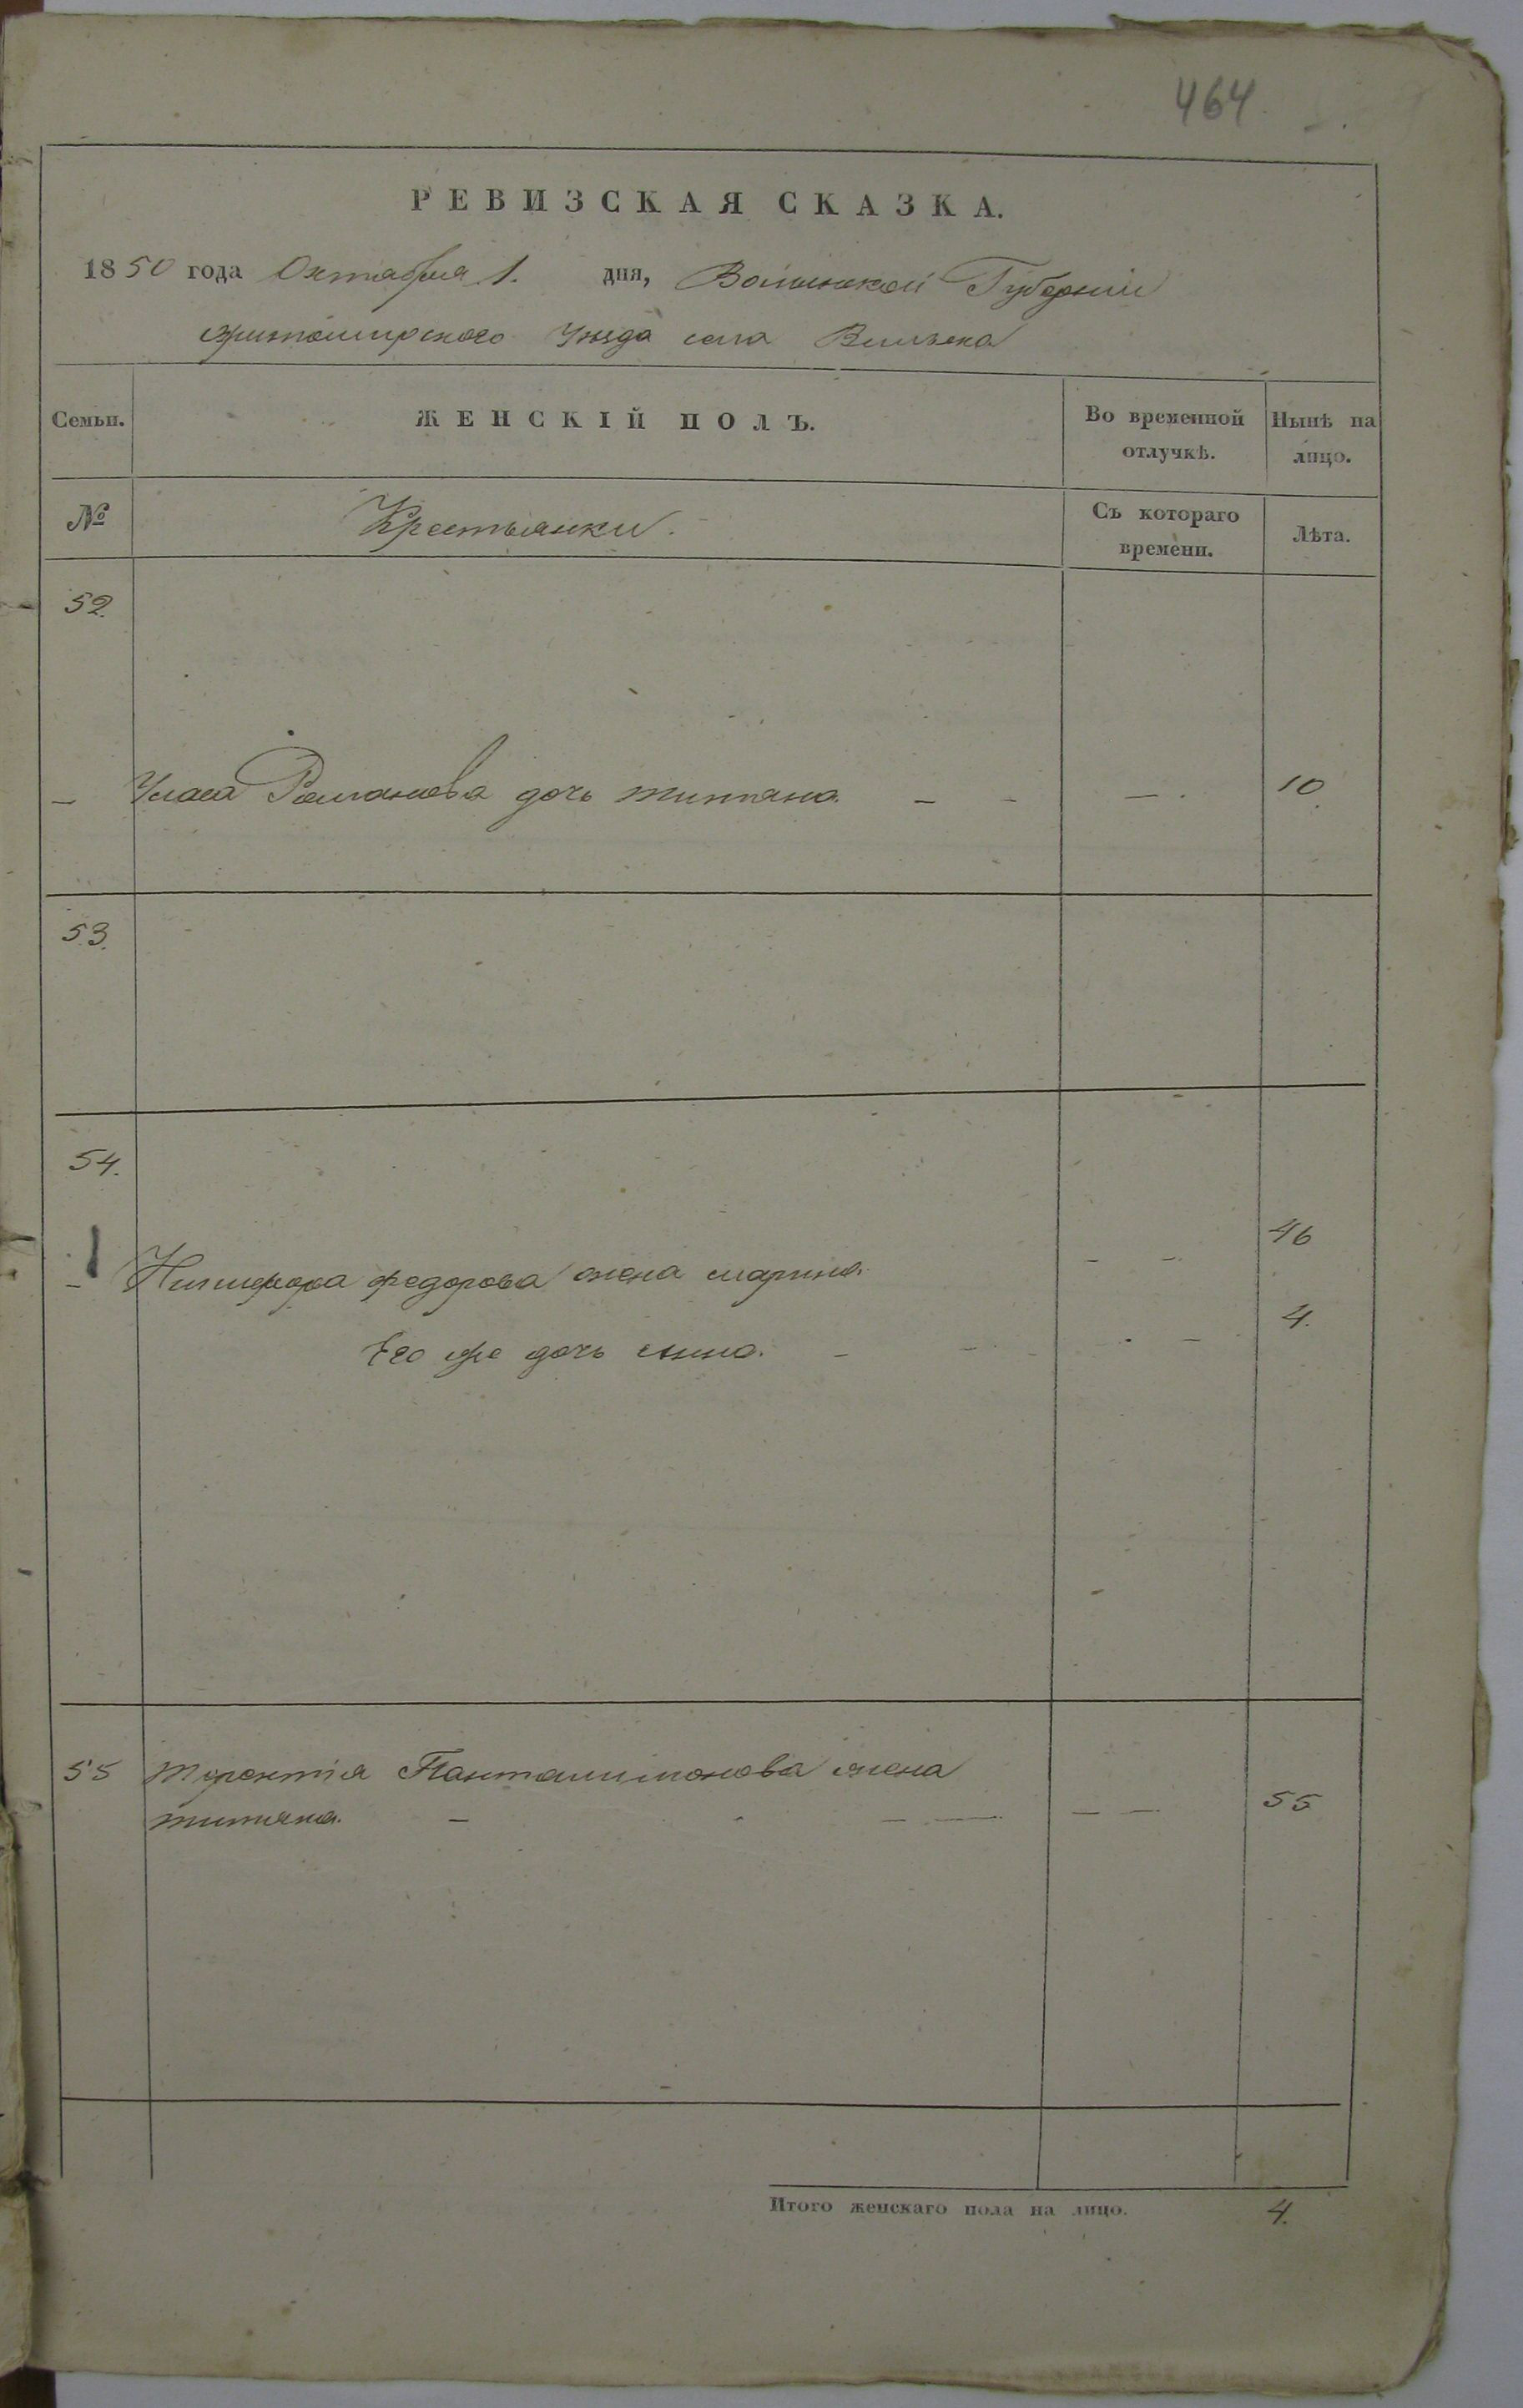 464
РЕВИЗСКАЯ СКАЗКА.
1850 года Октября 1. дня, Волынской Губернии
житомирского Уезда села Вильска
Семьи. ЖЕНСКІЙ ПОЛЪ. Во временной отлучкѣ. Нынѣ на лицо.
№ Крестьянки. Съ котораго времени. Лѣта.
52.
Уласа Романова дочь титяна. 10
53.
54.
Никифора федорова жена марина. 46
Его же дочь 4.
55 терентія Панталимонова жена
титяна. 55
Итого женскаго пола на лицо. 4.